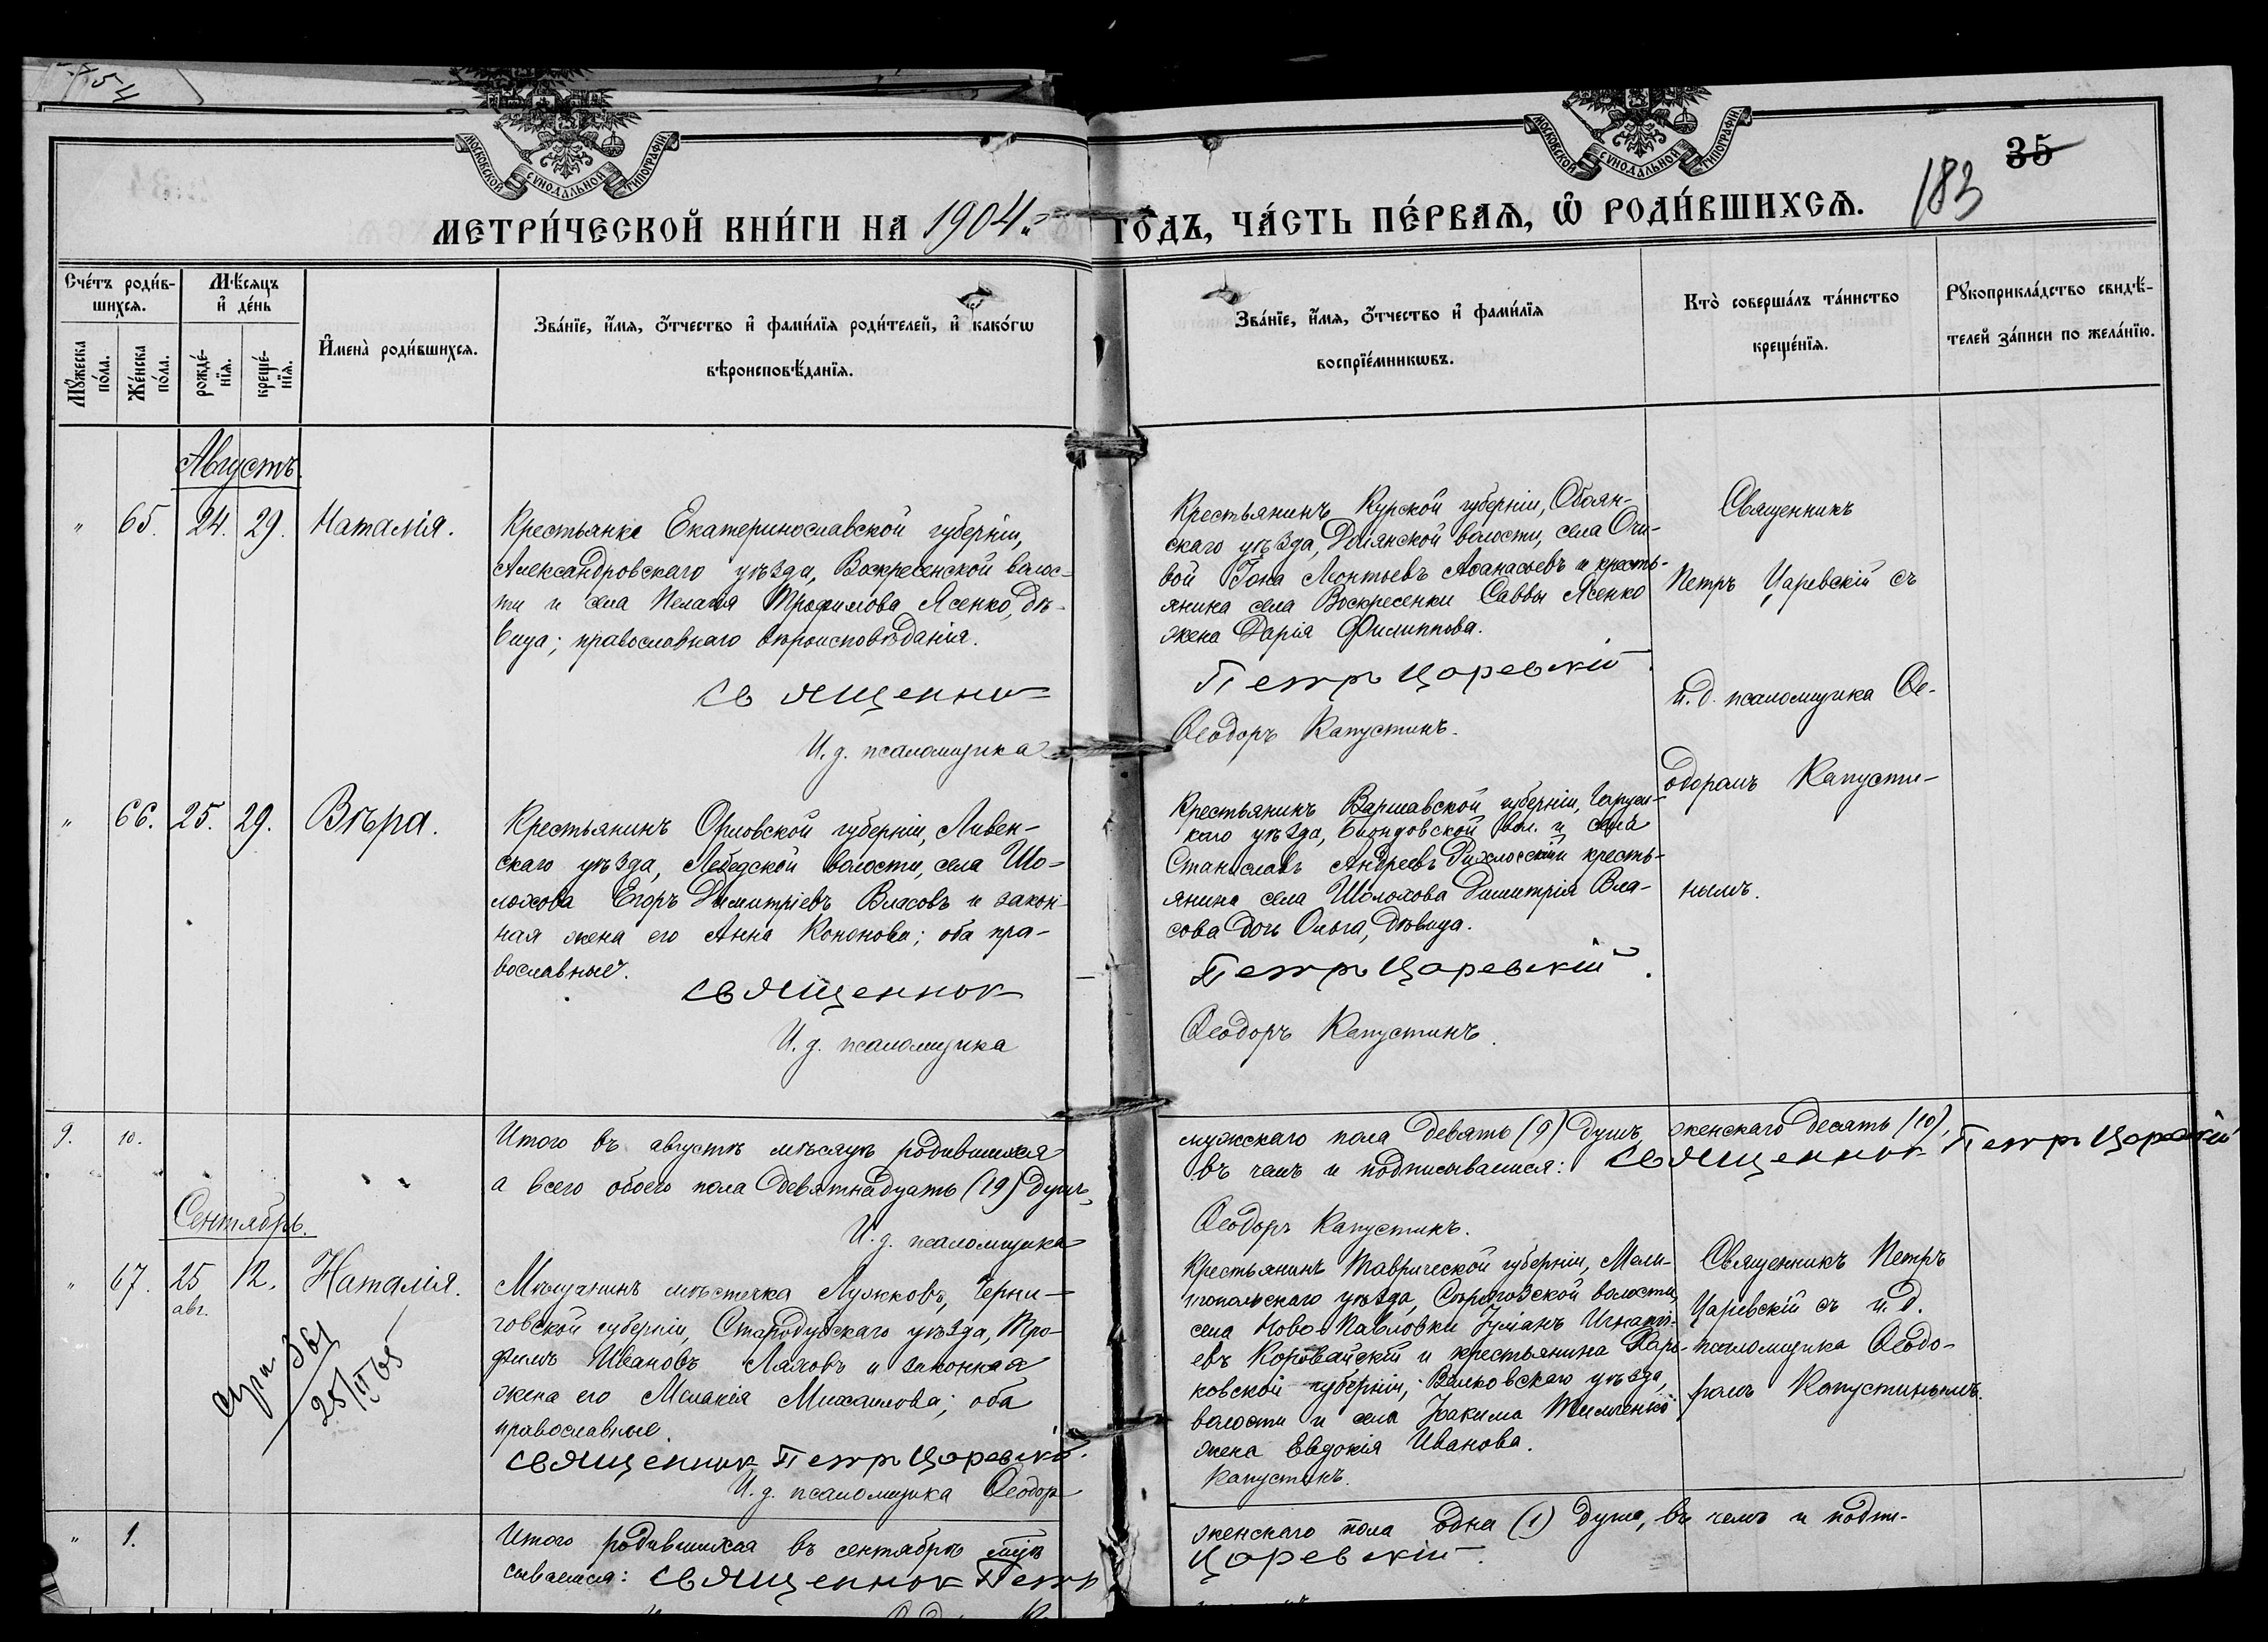 54
МОСКОВСКОЙ СѴНОДАЛЬНОЙ ТИПОГРАФІИ
МОСКОВСКОЙ СѴНОДАЛЬНОЙ ТИПОГРАФІИ
35
183
МЕТРИ́ЧЕСКОЙ КНИ́ГИ НА 1904.
ГО́ДЪ, ЧА́СТЬ ПЕ́РВАѦ, Ѽ РОДИ́ВШИХСѦ.
Сче́тъ роди́в-
шихсѧ.
Мꙋ́жеска
по́ла.
Же́нска
по́ла.
Мѣ́сѧцъ
и҆ де́нь
рожде́-
нїѧ.
креще́-
нїѧ.
И҆мена̀ роди́вшихсѧ.
Зва́нїе, и҆́мѧ, ѻ҆́тчество и҆ фами́лїѧ роди́телей, и҆ како́гѡ
вѣроисповѣ́данїѧ.
Зва́нїе, и҆́мѧ, ѻ҆́тчество и҆ фами́лїѧ
воспрїе́мникѡвъ.
Кто̀ соверша́лъ та́инство
креще́нїѧ.
Рꙋкоприкла́дство свидѣ́-
телей за́писи по жела́нїю.
Августъ.
" 65. 24. 29. Наталія.
Крестьянка Екатеринославской губерніи,
Александровскаго уѣзда, Воскресенской волос-
ти и села Пелагія Трофимова Ясенко, дѣ-
вица; православнаго вѣроисповѣданія.
Священник
И. д. псаломщика
Крестьянинъ Курской губерніи, Обоян-
скаго уѣзда, Долянской волости, села
вой Леонтьевъ Аѳанасьевъ и кресть-
янина села Воскресенки Саввы Ясенко
жена Дарія Филиппова.
Петръ Царевскій.
Ѳеодоръ Капустинъ.
Священникъ
Петръ Царевскій съ
и. д. псаломщика Ѳе-
одоромъ Капусти-
нымъ.
" 66. 25. 29. Вѣра.
Крестьянинъ Орловской губерніи, Ливен-
скаго уѣзда, Лебедской волости, села Шо-
лохова Егоръ Димитріевъ Власовъ и закон-
ная жена его Анна Кононова; оба пра-
вославные.
Священник
И. д. псаломщика
Крестьянинъ Варшавской губерніи,
каго уѣзда, вол. и села
Станиславъ Андреевъ и кресть-
янина села Шолохова Димитрія Вла-
сова дочь Ольга, дѣвица.
Петръ Царевскій.
Ѳеодоръ Капустинъ.
9. 10.
Итого въ августѣ мѣсяцѣ родившихся
а всего обоего пола девятнадцать (19) душъ,
И. д. псаломщика
мужскаго пола девять (9) душъ, женскаго десять (10),
въ чемъ и подписываемся: Священник Петръ Царевскій
Ѳеодоръ Капустинъ.
Сентябрь.
" 67. 25 авг. 12. Наталія.
Мѣщанинъ мѣстечка Лужковъ, Черни-
говской губерніи, Стародубскаго уѣзда, Тро-
фимъ Ивановъ Ляховъ и законная
жена его Меланія Михаилова; оба
православные.
Священник Петръ Царевскій.
И. д. псаломщика Ѳеодоръ
25/II 65
Крестьянинъ Таврической губерніи, Мели-
топольскаго уѣзда, волости,
села Ново-Павловки Іуліанъ Игнаті-
евъ Коровайскій и крестьянина Харь-
ковской губерніи, Валковскаго уѣзда,
волости и села Іоакима Тимченко
жена Евдокія Иванова.
Капустинъ.
Священникъ Петръ
Царевскій съ и. д.
псаломщика Ѳеодо-
ромъ Капустинымъ.
" 1.
Итого родившихся въ сентябрѣ мцѣ
сываемся: Священник Петръ
женскаго пола одна (1) душа, въ чемъ и подпи-
Царевскій.